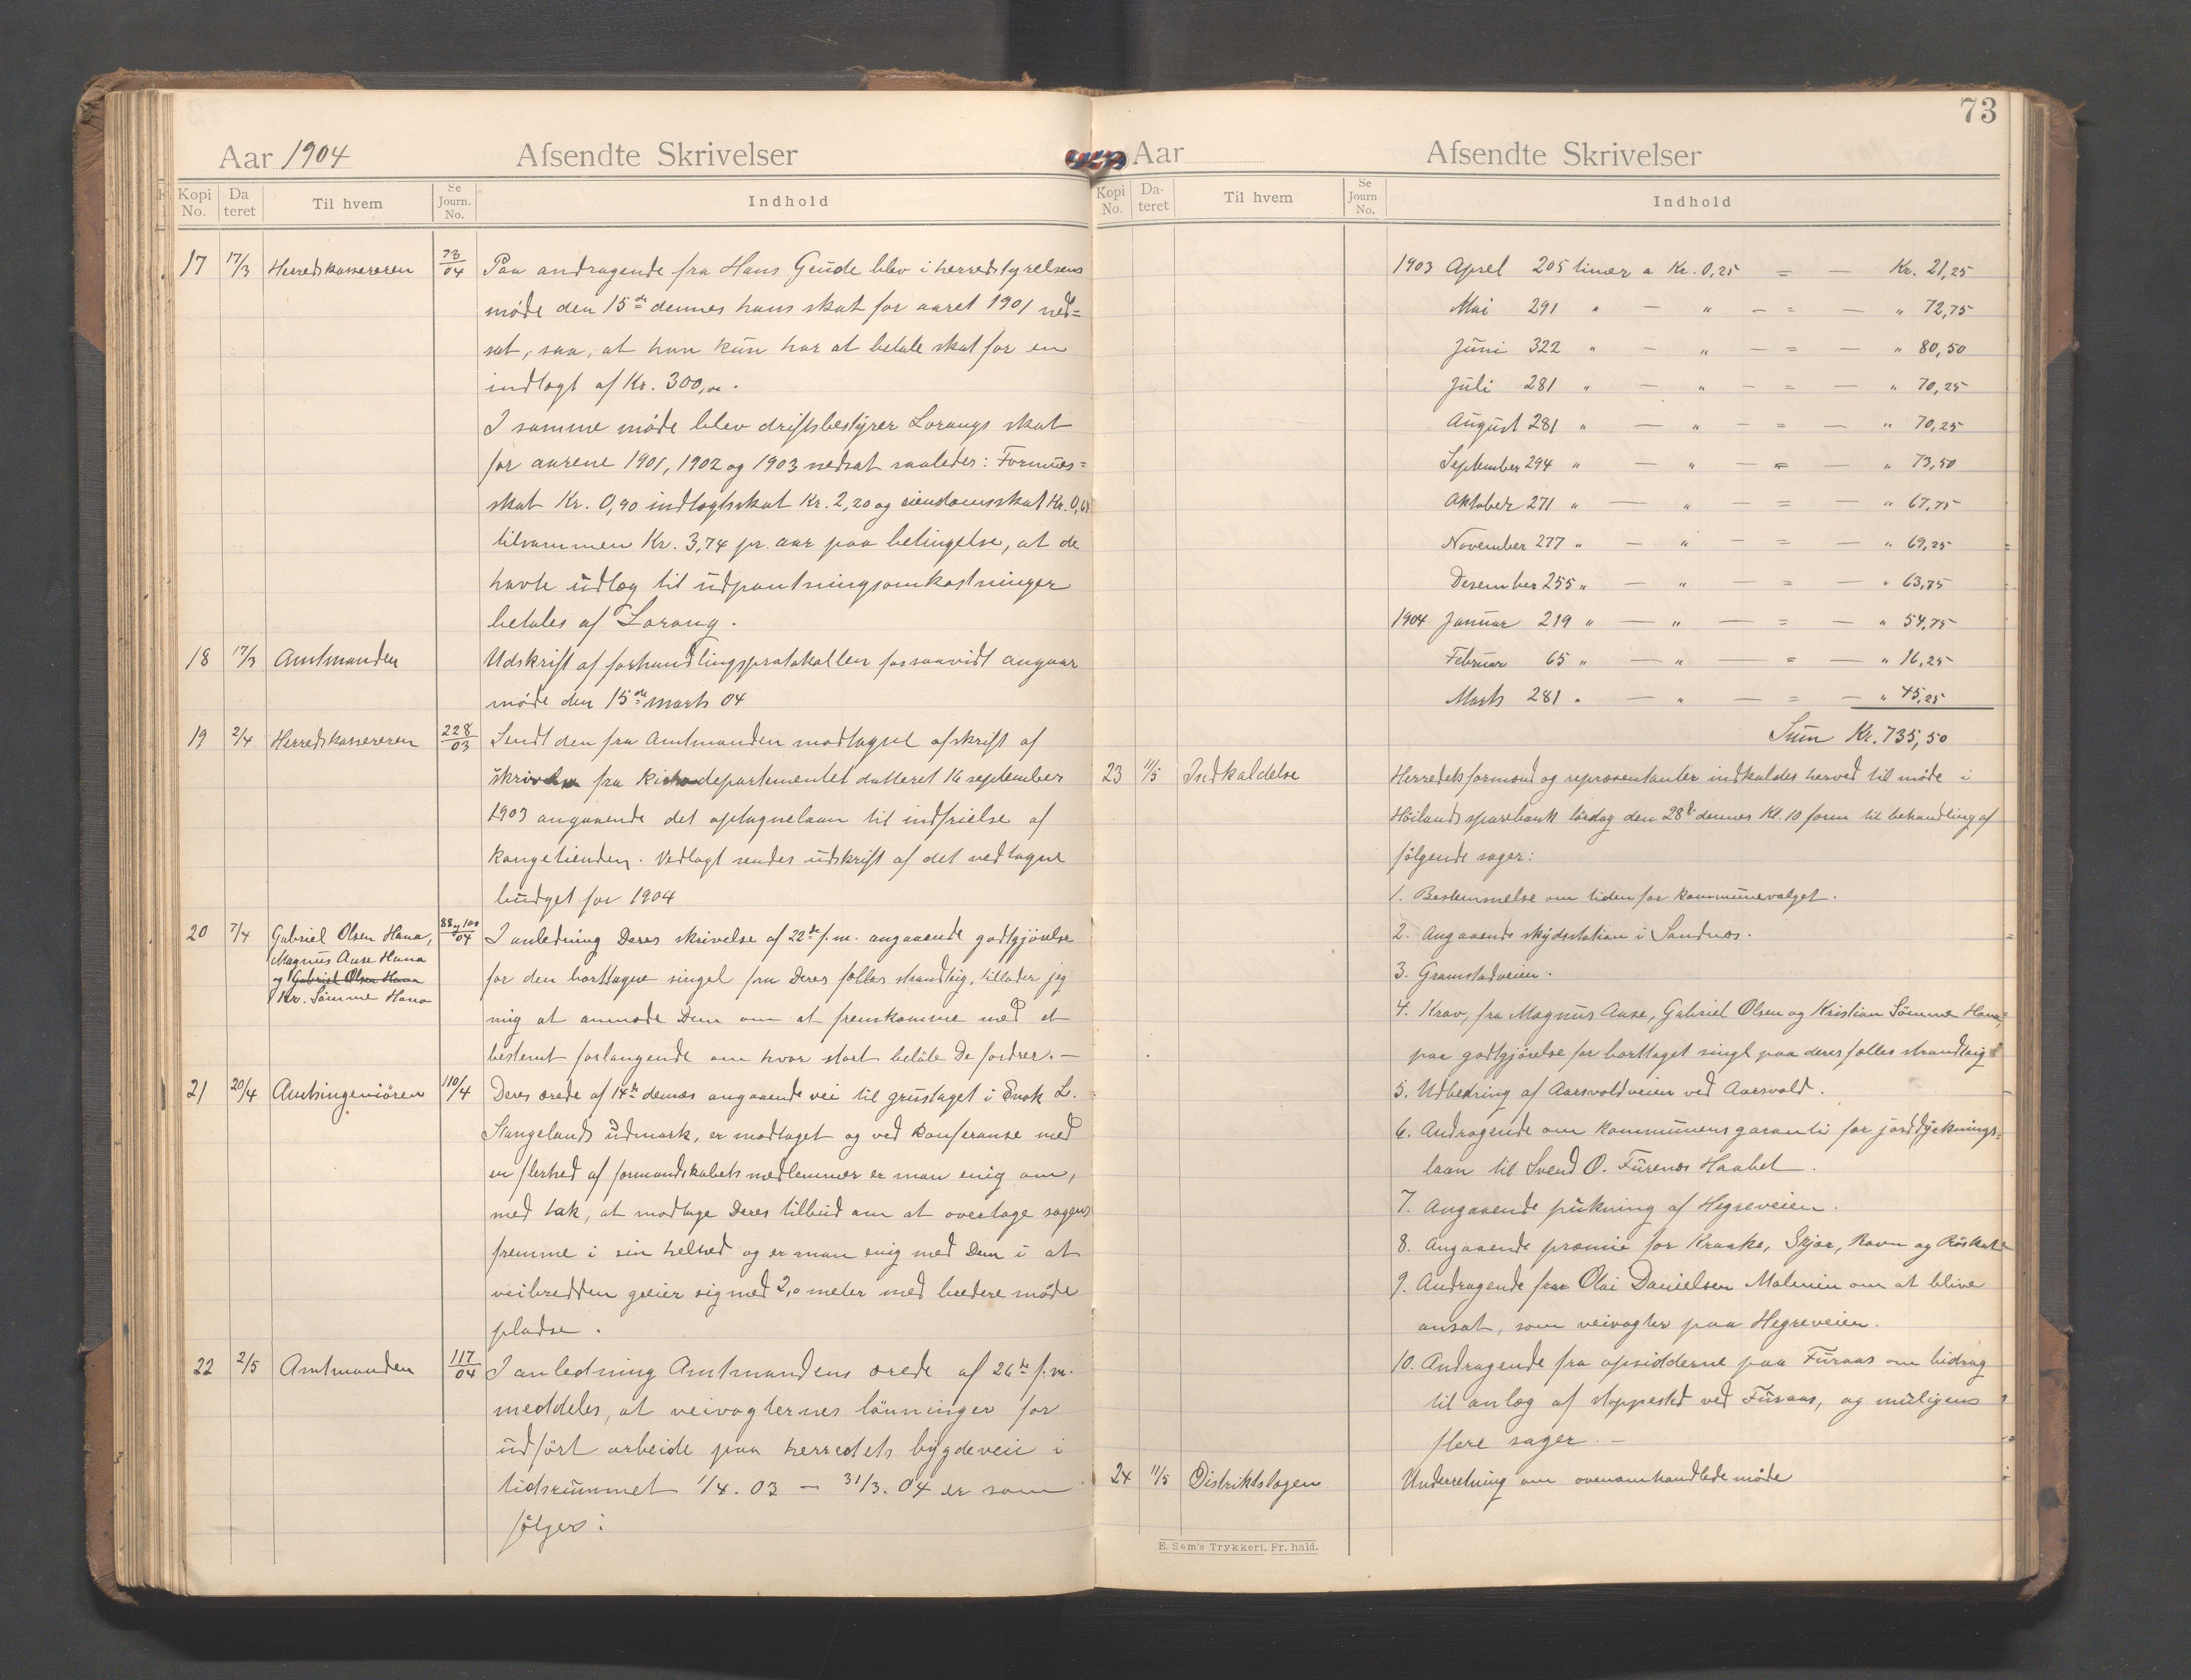 73
Aar 1904 Afsendte Skrivelser
Kopi No. Da teret Til hvem Se Journ. No. Indhold
17 17/3 Herredskassereren 73/04 Paa andragende fra Hans Gude blev i herredstyrelsens
møde den 15de dennes hans skat for aaret 1901 ned=
sat, saa, at han kun har at betale skat for en
indtægt af Kr. 300,00.
I samme møde blev driftsbestyrer Lorangs skat
for aarene 1901, 1902 og 1903 nedsat saaledes: Formues=
skat Kr. 0,90 indtægtsskat Kr. 2,20 og eiendomsskat Kr. 0,64
tilsammen Kr. 3,74 pr. aar paa betingelse, at de
havte udlæg til udpantningsomkostninger
betales af Lorang.
18 17/3 Amtmanden Udskrift af forhandlingsprotokollen forsaavidt angaar
møde den 15de marts 04
19 2/4 Herredskassereren 228/03 Sendt den fra Amtmanden modtagne afskrift af
skrivelse fra Kirkedepartementet datteret 16 september
1903 angaaende det optagne laan til indfrielse af
Kongetienden. Vedlagt sendes udskrift af det vedtagne
budget for 1904
20 7/4 Gabriel Olsen Hana, 88 og 100/04 I anledning Deres skrivelse af 22de f.m. angaaende godtgjørelse
Magnus Aase Hana
for den borttagne singel fra Deres fælles strandteig, tillader jeg
og Gabriel Olsen Hana
Kr. Sømme Hana
mig at anmode Dem om at fremkomme med et
bestemt forlangende om hvor stort beløb De fordrer. —
21 20/4 Amtsingeniøren 110/4 Deres ærede af 14de dennes angaaende vei til grustaget i Enok L.
Stangelands udmark, er modtaget og ved Konferanse med
en flerhed af formandskabets medlemmer er man enig om,
med tak, at modtage Deres tilbud om at overtage sagens
fremme i sin helhed og er man enig med Dem i at
veibredden greier sig med 2,0 meter med bedere møde
pladse.
22 2/5 Amtmanden 117/04 I anledning Amtmandens ærede af 26de f.m.
meddeles, at veivogternes lønninger for
udført arbeide paa herredets bygdeveie i
tidsrummet 1/4. 03 — 31/3. 04 er som
følger:
Aar Afsendte Skrivelser
Kopi No. Da- teret Til hvem Se Journ No. Indhold
1903 April 205 timer a Kr. 0,25 = — Kr. 21,25
Mai 291 " — " — = — " 72,75
Juni 322 " — " — = — " 80,50
Juli 281 " — " — = — " 70,25
August 281 " — " — = — " 70,25
September 294 " — " — = — " 73,50
Oktober 271 " — " — = — " 67,75
November 277 " — " — = — " 69,25
Desember 255 " — " — = — " 63,75
1904 Januar 219 " — " — = — " 54,75
Februar 65 " — " — = — " 16,25
Marts 281 " — " — = — " 45,25
Sum Kr. 735,50
23 11/5 Indkaldelse Herredets formænd og repræsentanter indkaldes herved til møde i
Høilands sparebank lørdag den 28de dennes Kl. 10 form til behandling af
følgende sager:
1. Bestemmelse om tiden for kommunevalget.
2. Angaaende skydsstation i Sandnæs.
3. Gramstadveien.
4. Krav, fra Magnus Aase, Gabriel Olsen og Kristian Sømme Hana,
paa godtgjørelse for borttaget singl paa deres fælles strandteig
5. Udbedring af Aarsvoldveien ved Aarsvold.
6. Andragende om kommunens garanti for jorddyrknings=
laan til Svend O. Furenæs Haabet.
7. Angaaende pukning af Hegreveien.
8. Angaaende præmie for Kraake, Skjær, Ravn og Røskat
9. Andragende fra Olai Danielsen Malmin om at blive
ansat, som veivogter paa Hegreveien.
10. Andragende fra opsidderne paa Furaas om bidrag
til anlæg af stoppested ved Furaas, og muligens
flere sager. —
24 11/5 Distriktslægen Underretning om ovenomhandlede møde
E. Sem's Trykkeri, Fr. hald.